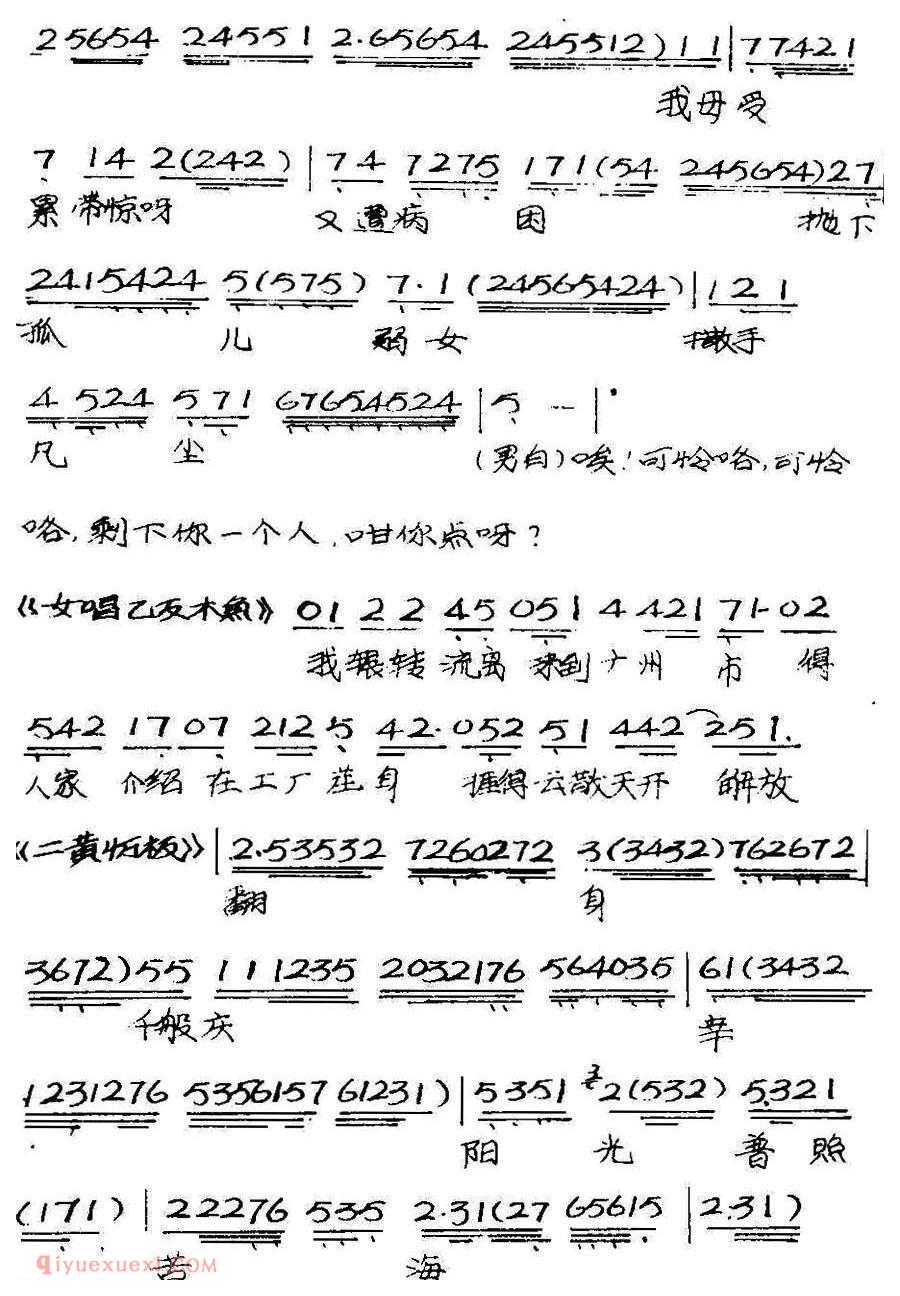 25654 24551 2.65654 245512)11|77421
我母受
7 14 2(242)|74 7275 171(54 245654)27
累带惊呀 又遭病 困 抛下
2415424 5(575) 7·1(24565424)|121
孤 儿 弱女 撒手
4 524 571 67654524|5 —|
凡 尘 (男白)唉!可怜咯,可怜
咯,剩下你一个人,咁你点呀?
《女唱乙反木魚》 01 22 45 051 4 421 71· 02
我辗转流离来到广州 市 得
542 17 07 212 5 42·052 51 442 251.
人家 介绍 在工厂 身 得云散天开 解放
《二黄 板》|2.53532 7260272 3(3432)762672|
翻 身
3672)55 111235 2032176 564035|61(3432
千般庆 幸
1231276 5356157 61231)|5351 3 2(532) 5.321
阳 光 普照
(.171)|22276 535 2.31(27 65615|2.31)
苦 海
qiyuexuexi.COM